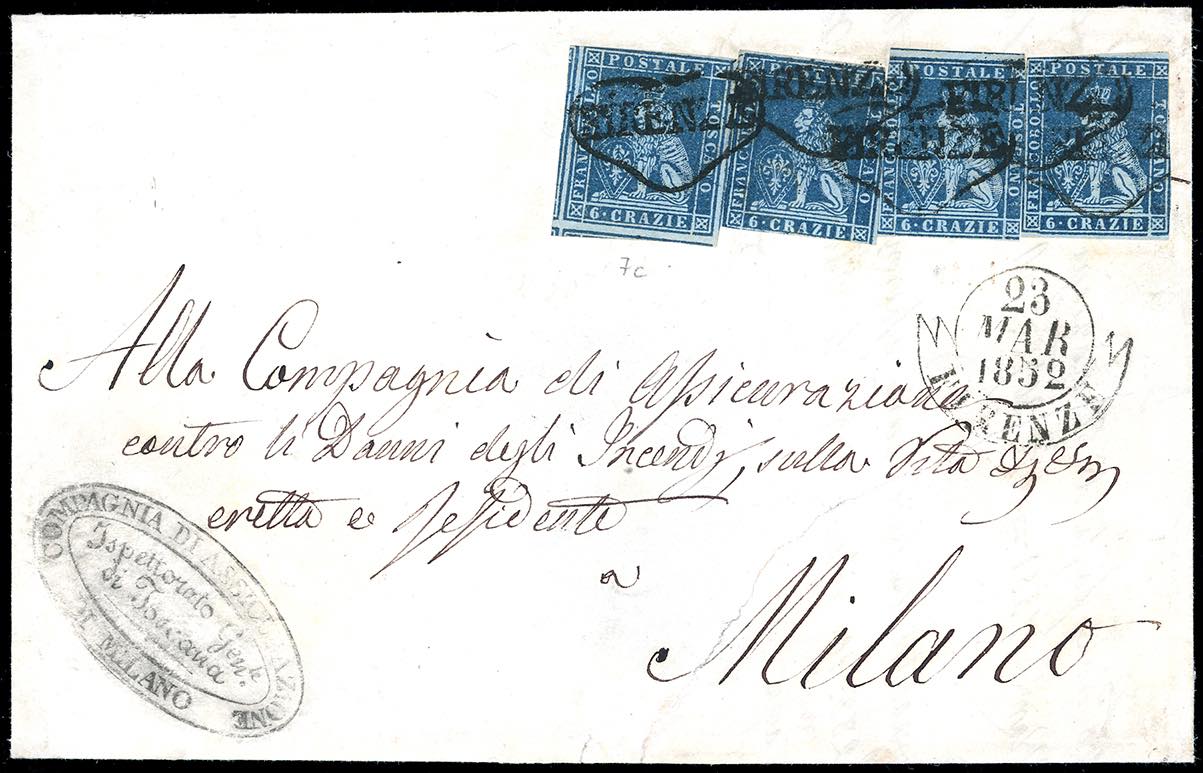 POSTALE POSTALE POSTALE POSTALE
FRANCOBOLLO TOSCANO FRANCOBOLLO TOSCANO FRANCOBOLLO TOSCANO FRANCOBOLLO TOSCANO
FIRENZE FIRENZE FIRENZE FIRENZE
6 · CRAZIE 6 · CRAZIE 6 · CRAZIE 6 · CRAZIE
7c
23
MAR
1852
FIRENZE
Alla Compagnia di Assicurazione
contro li Danni degli Incendj, sulla Vita
eretta e residente
a
Milano
COMPAGNIA DI ASSICURAZIONE
Ispettorato Genle
di Toscana
DI MILANO